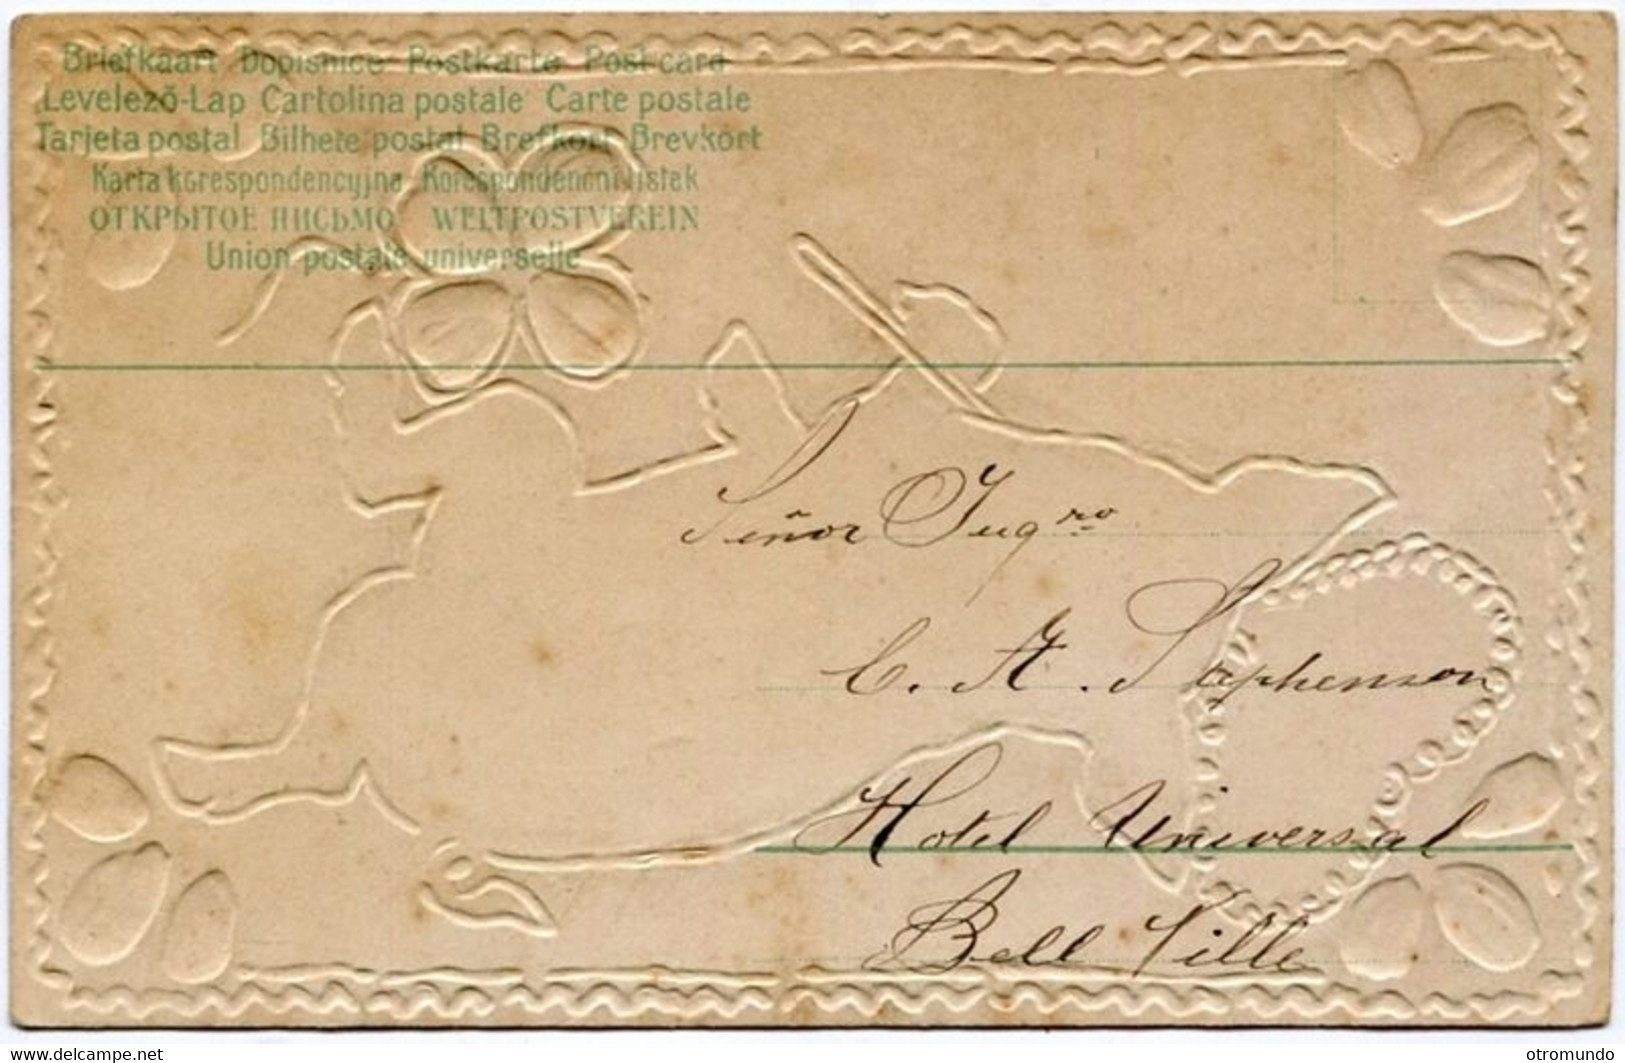 Briefkaart Dopisnice Postkarte Post card
Levelező-Lap Cartolina postale Carte postale
Tarjeta postal Bilhete postal Brefkort Brevkort
Karta korespondencyjna Korespondencni listek
ОТКРЫТОЕ ПИСЬМО WELTPOSTVEREIN
Union postale universelle
Señor Ingro
C. A. Stephenson
Hotel Universal
Bell Ville
www.delcampe.net
otromundo